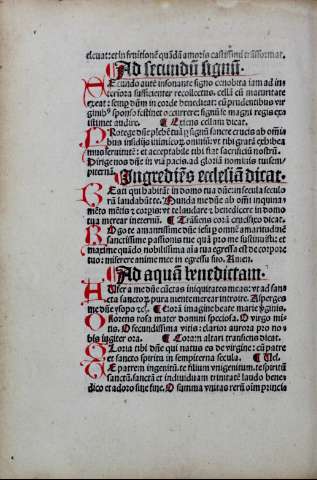 eleuat: et in fruitionē quādā amoris castissimi trāsformat.
Ad secundū signū.
Secundo autē insonante signo cenobita iam ad in
teriora sufficienter recollectus, cellā cū maturitate
exeat: semp dūm in corde benedicat: cū prudentibus vir
ginibus sponso festinet occurrere: signūque magni regis exa
istimet audire. ¶ Exiens cellam dicat.
Protege dñe plebē tuā p signū sancte crucis ab oĩi
bus insidijs inimicorū omniū: vt tibi gratā exhibea
mus seruitutē: et acceptabile tibi fiat sacrificiū nostrū.
Dirige nos dñe in via pacis, ad gloriā nominis tui sem
piternā.
Ingrediēs ecclesiā dicat.
Beati qui habitāt in domo tua dñe: in secula seculo
rū laudabūt te. Munda me dñe ab omni inquina
mēto mētis et corpis: vt te laudare et benedicere in domo
tua merear in eternū. ¶ Trāsiens corā crucifixo dicat.
Rogo te amantissime dñe iesu p omnē amaritudinē
sanctissime passionis tue quā pro me sustinuisti: et
maxime quādo nobilissima aīa tua egressa est de corpore
tuo: miserere anime mee in egressu suo. Amen.
Ad aquam benedictam.
Aufer a me dñe cūctas iniquitates meas: vt ad san
cta sanctorū pura mente merear introire. Asperges
me dñe ysopo rc. ¶ Corā imagine beate marie virginis.
Florens rosa mater domini speciosa. O virgo mi
tis. O fecundissima vitis: clarior aurora pro no
bis iugiter ora. ¶ Coram altari transiens dicat.
Gloria tibi dñe qui natus es de virgine: cū patre
et sancto spiritu in sempiterna secula. ¶ Uel.
Te patrem ingenitū, te filium vnigenitum, te spiritū
sanctū, sanctā et indiuiduam trinitatē laudo bene
dico et adoro sine fine. O summa vnitas rerū oīm principiū